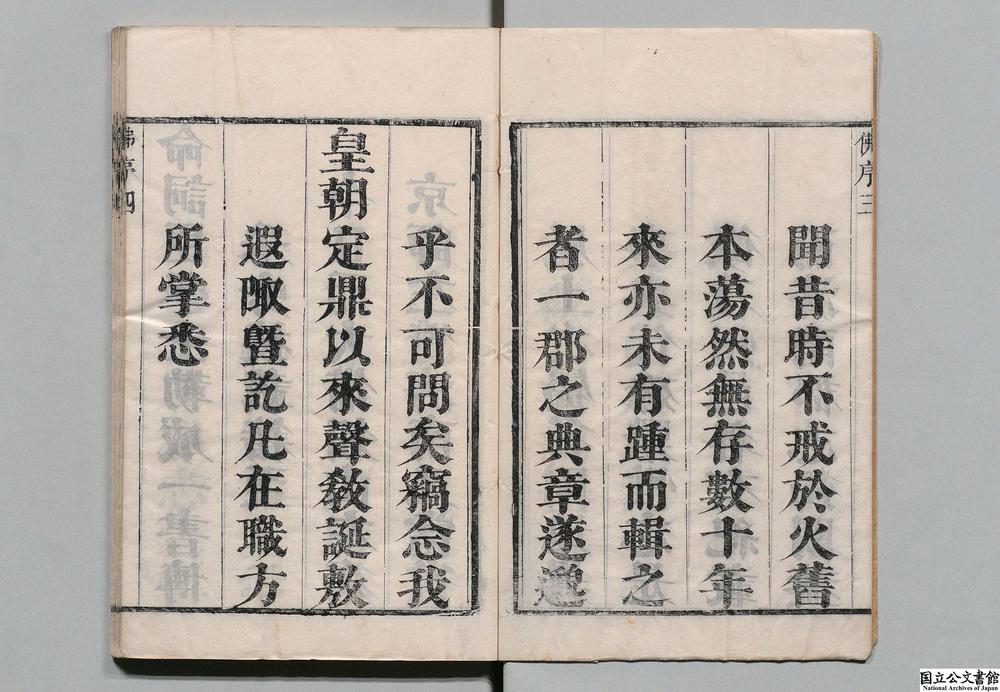 佛序三
聞昔時不戒於火舊
本蕩然無存數十年
來亦未有踵而輯之
者一郡之典章遂邈
乎不可問矣竊念我
皇朝定鼎以來聲敎誕敷
遐陬暨訖凡在職方
所掌悉
佛序四
国立公文書館
National Archives of Japan